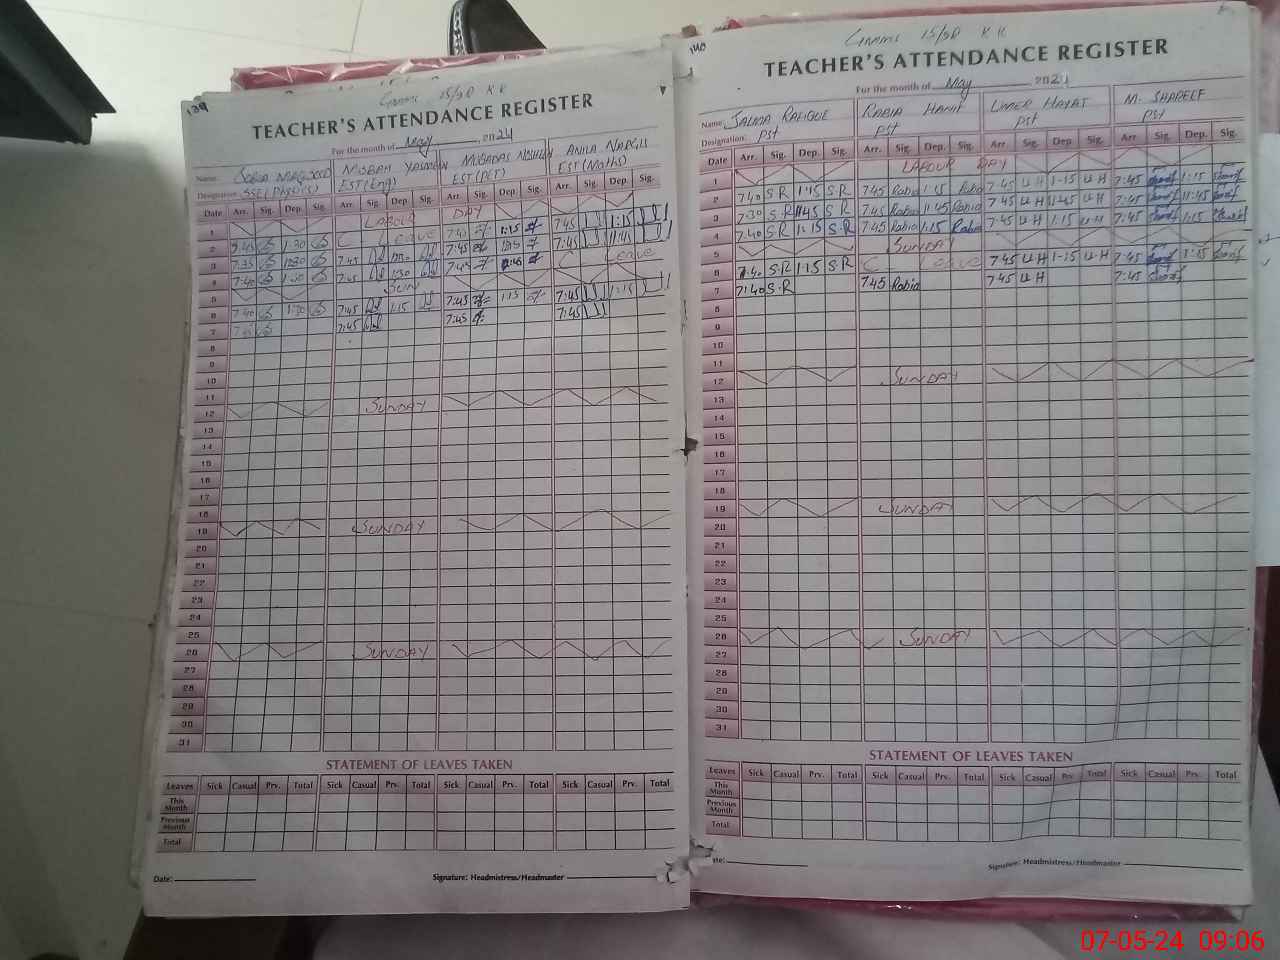 139
GGMMS 15/9R K K
TEACHER'S ATTENDANCE REGISTER
For the month of May, 2024
Name: SOBIA MAQSOOD MISBAH YASMEEN ANILA NARGIS
Designation: EST(Eng) EST(Maths)
Date Arr. Sig. Dep. Sig. Arr. Sig. Dep. Sig. Arr. Sig. Dep. Sig. Arr. Sig. Dep. Sig.
1 LABOUR DAY
2 7:45 1:30 C Leave 7:45 1:15 7:45 1:15
3 7:35 7:45 7:45 7:45 11:45
4 7:40 1:30 7:45 1:30 7:45 C Leave
5 SUN
6 7:40 1:30 7:45 1:15 7:45 1:15 7:45 1:15
7 7:45 7:45 7:45 7:45
8
9
10
11
12 SUNDAY
13
14
15
16
17
18
19 SUNDAY
20
21
22
23
24
25
26 SUNDAY
27
28
29
30
31
STATEMENT OF LEAVES TAKEN
Leaves Sick Casual Prv. Total Sick Casual Prv. Total Sick Casual Prv. Total Sick Casual Prv. Total
This Month
Previous Month
Total
Date:
Signature: Headmistress/Headmaster
140
GGMMS 15/9R K K
TEACHER'S ATTENDANCE REGISTER
For the month of May, 2024
Name: SALMA RAFIQUE RABIA HANIF UMER HAYAT M. SHAREEF
Designation: PST PST PST PST
Date Arr. Sig. Dep. Sig. Arr. Sig. Dep. Sig. Arr. Sig. Dep. Sig. Arr. Sig. Dep. Sig.
1 LABOUR DAY
2 7:40 S.R 1:15 S.R 7:45 Rabia 1:15 Rabia 7:45 U H 1:15 U H 7:45 1:15
3 7:30 S.R 11:45 S.R 7:45 Rabia 11:45 Rabia 7:45 U H 11:45 U H 7:45 11:45
4 7:40 S.R 1:15 S.R 7:45 Rabia 1:15 Rabia 7:45 U H 1:15 U H 7:45 1:15
5 SUNDAY
6 7:40 S.R 1:15 S.R C Leave 7:45 U H 1:15 U H 7:45 1:15
7 7:40 S.R 7:45 Rabia 7:45 U H 7:45
8
9
10
11
12 SUNDAY
13
14
15
16
17
18
19 SUNDAY
20
21
22
23
24
25
26 SUNDAY
27
28
29
30
31
STATEMENT OF LEAVES TAKEN
Leaves Sick Casual Prv. Total Sick Casual Prv. Total Sick Casual Prv. Total Sick Casual Prv. Total
This Month
Previous Month
Total
Signature: Headmistress/Headmaster
07-05-24 09:06